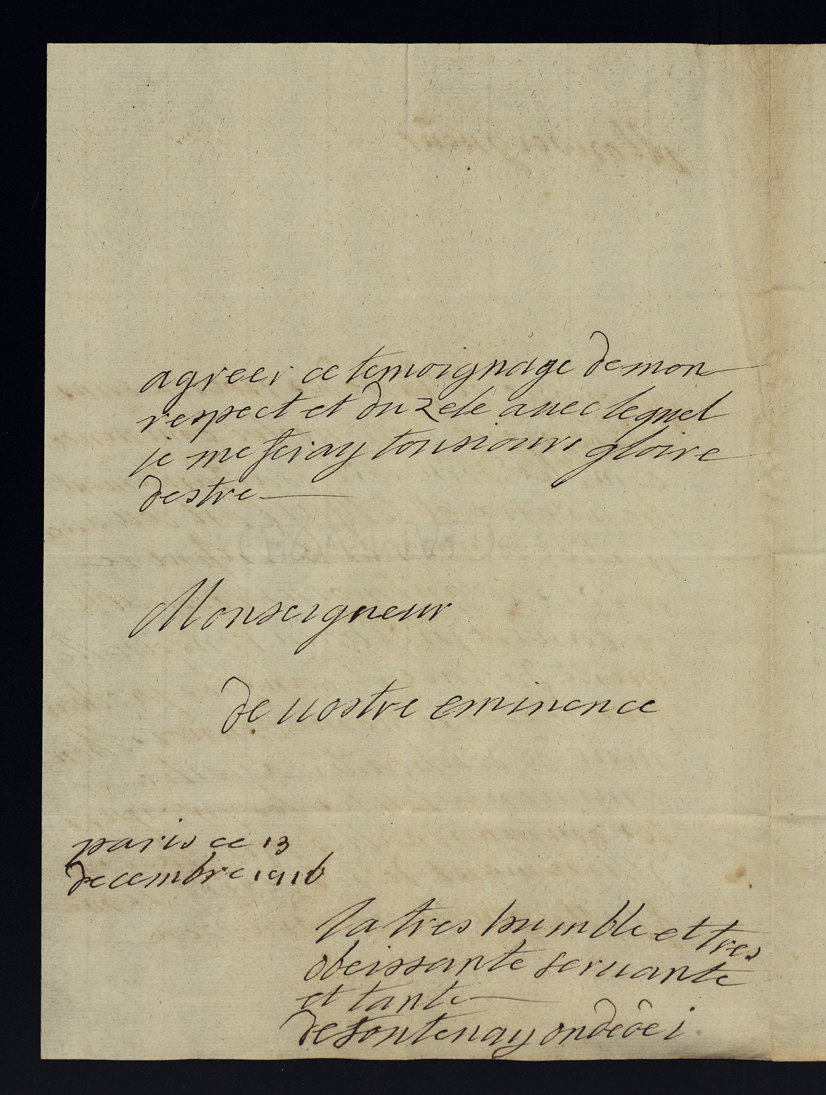 agreer ce temoignage de mon
respect et du zele auec lequel
je me feray tousiours gloire
destre
Monseigneur
de uostre eminence
paris ce 13
decembre
la tres humble et tres
obeissante seruante
et tante
de fontenay ondedei